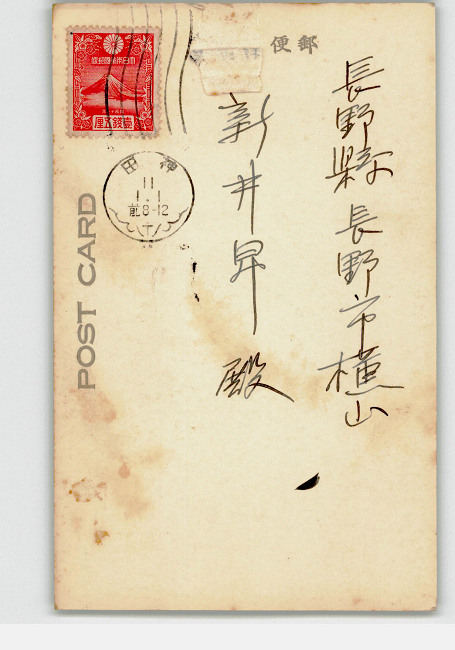 便郵
長野縣長野市横山
新井昇殿
大日本帝國郵便
壹錢五厘
神田
11
1.1
前8-12
POST CARD